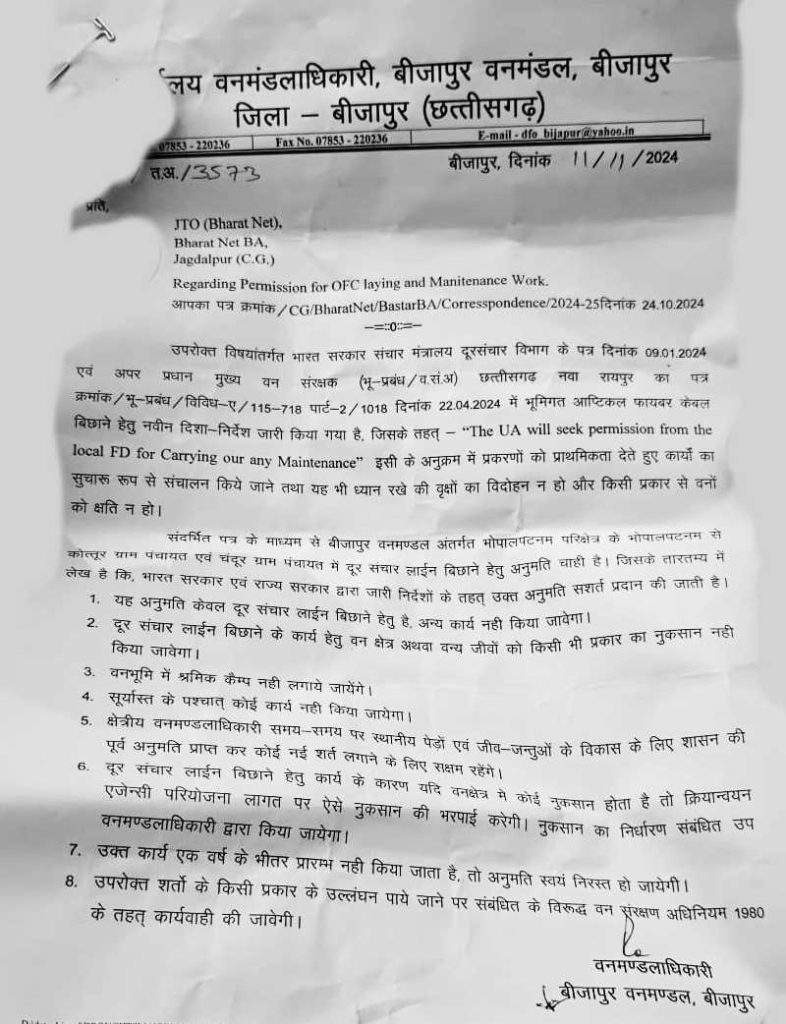 र्लय वनमंडलाधिकारी, बीजापुर वनमंडल, बीजापुर
जिला – बीजापुर (छत्तीसगढ़)
07853 - 220236 Fax No. 07853 - 220236 E-mail - dfo_bijapur@yahoo.in
त.अ./3573 बीजापुर, दिनांक 11/11/2024
प्रति,
JTO (Bharat Net),
Bharat Net BA,
Jagdalpur (C.G.)
Regarding Permission for OFC laying and Manitenance Work.
आपका पत्र क्रमांक/CG/BharatNet/BastarBA/Corresspondence/2024-25दिनांक 24.10.2024
–=::0::=–
उपरोक्त विषयांतर्गत भारत सरकार संचार मंत्रालय दूरसंचार विभाग के पत्र दिनांक 09.01.2024
एवं अपर प्रधान मुख्य वन संरक्षक (भू–प्रबंध/व.सं.अ) छत्तीसगढ़ नवा रायपुर का पत्र
क्रमांक/भू–प्रबंध/विविध–ए/115–718 पार्ट–2/1018 दिनांक 22.04.2024 में भूमिगत आप्टिकल फायबर केबल
बिछाने हेतु नवीन दिशा–निर्देश जारी किया गया है, जिसके तहत् – “The UA will seek permission from the
local FD for Carrying our any Maintenance” इसी के अनुक्रम में प्रकरणों को प्राथमिकता देते हुए कार्यों का
सुचारू रूप से संचालन किये जाने तथा यह भी ध्यान रखे की वृक्षों का विदोहन न हो और किसी प्रकार से वनों
को क्षति न हो।
संदर्भित पत्र के माध्यम से बीजापुर वनमण्डल अंतर्गत भोपालपटनम परिक्षेत्र के भोपालपटनम से
कोत्तूर ग्राम पंचायत एवं चंदूर ग्राम पंचायत में दूर संचार लाईन बिछाने हेतु अनुमति चाही है। जिसके तारतम्य में
लेख है कि, भारत सरकार एवं राज्य सरकार द्वारा जारी निर्देशों के तहत् उक्त अनुमति सशर्त प्रदान की जाती है।
1. यह अनुमति केवल दूर संचार लाईन बिछाने हेतु है, अन्य कार्य नही किया जावेगा।
2. दूर संचार लाईन बिछाने के कार्य हेतु वन क्षेत्र अथवा वन्य जीवों को किसी भी प्रकार का नुकसान नही
किया जावेगा।
3. वनभूमि में श्रमिक कैम्प नही लगाये जायेंगे।
4. सूर्यास्त के पश्चात् कोई कार्य नही किया जायेगा।
5. क्षेत्रीय वनमण्डलाधिकारी समय–समय पर स्थानीय पेड़ों एवं जीव–जन्तुओं के विकास के लिए शासन की
पूर्व अनुमति प्राप्त कर कोई नई शर्त लगाने के लिए सक्षम रहेंगे।
6. दूर संचार लाईन बिछाने हेतु कार्य के कारण यदि वनक्षेत्र मे कोई नुकसान होता है तो क्रियान्वयन
एजेन्सी परियोजना लागत पर ऐसे नुकसान की भरपाई करेगी। नुकसान का निर्धारण संबंधित उप
वनमण्डलाधिकारी द्वारा किया जायेगा।
7. उक्त कार्य एक वर्ष के भीतर प्रारम्भ नही किया जाता है, तो अनुमति स्वयं निरस्त हो जायेगी।
8. उपरोक्त शर्तो के किसी प्रकार के उल्लंघन पाये जाने पर संबंधित के विरूद्ध वन संरक्षण अधिनियम 1980
के तहत् कार्यवाही की जावेगी।
वनमण्डलाधिकारी
बीजापुर वनमण्डल, बीजापुर